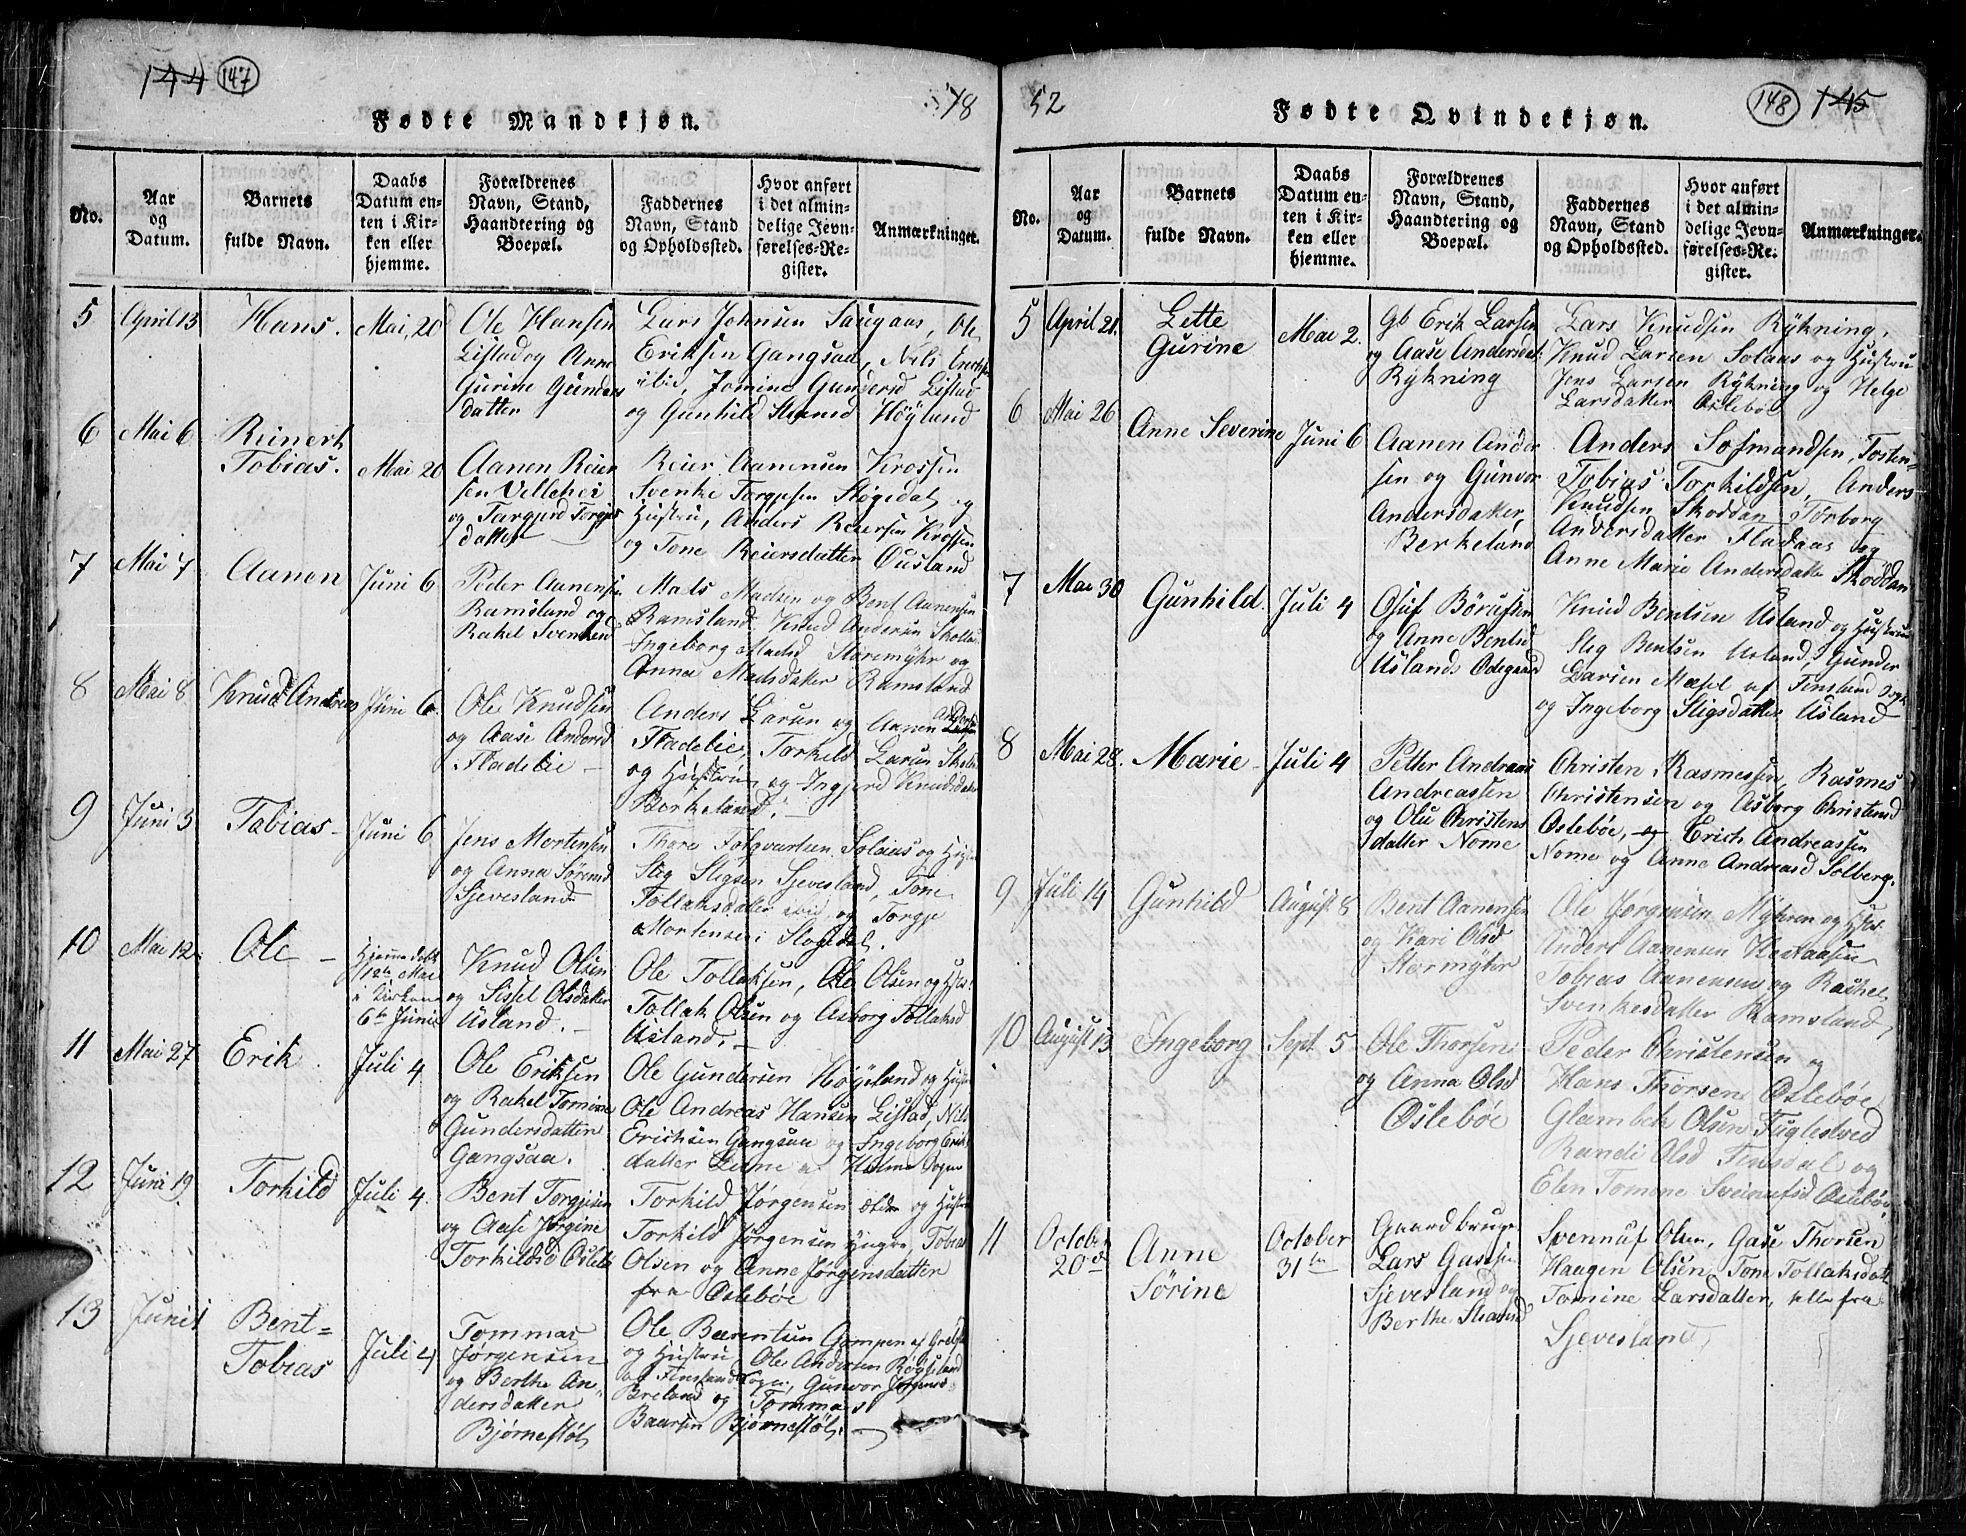 144 147
78
Fødte Mandkjøn.
No.
Aar
og
Datum.
Barnets
fulde Navn.
Daabs
Datum en-
ten i Kir-
ken eller
hjemme.
Forældrenes
Navn, Stand,
Haandtering og
Boepæl.
Faddernes
Navn, Stand
og Opholdssted.
Hvor anført
i det almin-
delige Jevn-
førelses-Re-
gister.
Anmærkninger.
5 April 13 Hans. Mai, 20
Ole Hansen
Listad og Anne
Gurine Gunders
datter
Lars Johnsen Saugaas, Ole
Eriksen Gangsaa, Nels
ibid, Jomine Gundersd Listad
og Gunhild Høyland
6 Mai 6 Reinert
Tobias. Mai 20
Aanen Reier
sen Vellehei
og Targjerd Torgjus
datter
Reier Aanensen Krossen
Svenke Torgjusen Støgedal og
Hustru, Anders Reiersen Krossen
og Tone Reiersdatter Ousland
7 Mai 7 Aanen Juni 6
Peder Aanensen
Ramsland og
Rakel Svenkesd
Mats Madsen og Bent Aanensen
Ramsland. Knud Andersen
Ingeborg Madsd Storemyhr og
Anna Madsdatter Ramsland
8 Mai 8 Knud Andreas Juni 6
Ole Knudsen
og Aase Andersd
Fladelie –
Anders Larsen og Aanen
Fladelie, Torkild Larsen
og Hustru og Ingjerd Knudsdatter
Berkeland. –
9 Juni 3 Tobias – Juni 6
Jens Mortensen
og Anna Sørensd
Sjevesland
Thore Folqvartsen Solaas og
Steg Stigsen Sjevesland, Tone
Tollaksdatter ibid og Torgje
Mortensen Støgedal.
10 Mai 12 Ole –
Hjemme døbt
12te Mai
i Kirken
6te Juni
Knud Olsen
og Sissel Olsdatter
Usland. –
Ole Tollaksen, Ole Olsen og
Tollak Olsen og Asborg Tollaksd
Usland. –
11 Mai 27 Erik. Juli 4
Ole Eriksen
og Rakel Tomine
Gundersdatter
Gangsaa.
Ole Gundersen Høyeland og
Ole Andreas Hansen Listad, Nels
Erichsen Gangsaa og Ingeborg Erik
datter Leime af Holme Sogn
12 Juni 19 Torkild Juli 4.
Bent Torgjusen
og Aase Jørgine
Torkildsd Oslebø
Torkild Jørgensen ældre og Hustru
Torkild Jørgensen yngre, Tobias
Olsen og Anne Jørgensdatter
fra Oslebøe
13 Juni 1 Bent=
Tobias Juli 4
Tommas
Jørgensen
og Berthe An-
dersdatter
Bjørnestøl
Ole Bærentsen Gompen af
og Hustru Ole Andersen Røyseland
af Finsland Sogn, Gunvor Jørgensd
Breland og Tommas
Baarsen Bjørnestøl.
52
148 145
Fødte Qvindekjøn.
No.
Aar
og
Datum.
Barnets
fulde Navn.
Daabs
Datum en-
ten i Kir-
ken eller
hjemme.
Forældrenes
Navn, Stand,
Haandtering og
Boepæl.
Faddernes
Navn, Stand
og Opholdssted.
Hvor anført
i det almin-
delige Jevn-
førelses-Re-
gister.
Anmærkninger.
5 April 21. Lette
Gurine Mai 2.
Gb Erik Larsen
og Aase Andersdat:
Rykning
Lars Knudsen Rykning,
Knud Larsen Solaas og Hustru
Jens Larsen Rykning og Helge
Larsdatter Oslebøe
6 Mai 26 Anne Severine Juni 6
Aanen Ander
sen og Gunvor
Andersdatter,
Berkeland
Anders Tosten-
Tobias Torkildsen, Anders
Knudsen Skoddan Torborg
Andersdatter Fladaas og
Anne Marie Andersdatter Skoddan
7 Mai 30 Gunhild. Juli 4
Osuf Børufsen
og Anne Bentsd
Uslands Ødegaard
Knud Bentsen Usland og Hustru
Steg Bentsen Usland, Gunder
Larsen Mæsel af Finsland Sogn
og Ingeborg Stigsdatter Usland
8 Mai 28. Marie – Juli 4
Petter Andreas
Andreassen
og Olu Christens
datter Nome
Christen Rasmessen, Rasmes
Christensen og Asborg Christensd
Oslebøe, og Erich Andreassen
Nome og Anne Andreasd Solberg.
9 Juli 14 Gunhild August 8
Bent Aanensen
og Kari Olsd
Stormyhr
Ole Jørgensen Myhren og
Anders Aanensen
Tobias Aanensen og Rachel
Svenkesdatter Ramsland
10 August 13 Ingeborg Sept. 5
Ole Thorsen
og Anna Olsd
Oslebøe
Peder Christensen og
Hans Thorsen Oslebøe
Glambek Olsen Fuglestved
Randi Olsd Finsdal og
Elen Tomine Oslebøe
11 October
20de Anne
Sørine October
31te
Gaardbruger
Lars Gasesen
Sjevesland og
Berthe
Svennuf Olsen, Gase Thorsen
Haagen Olsen, Tone Tollaksdat
Tomine Larsdatter, alle fra
Sjevesland